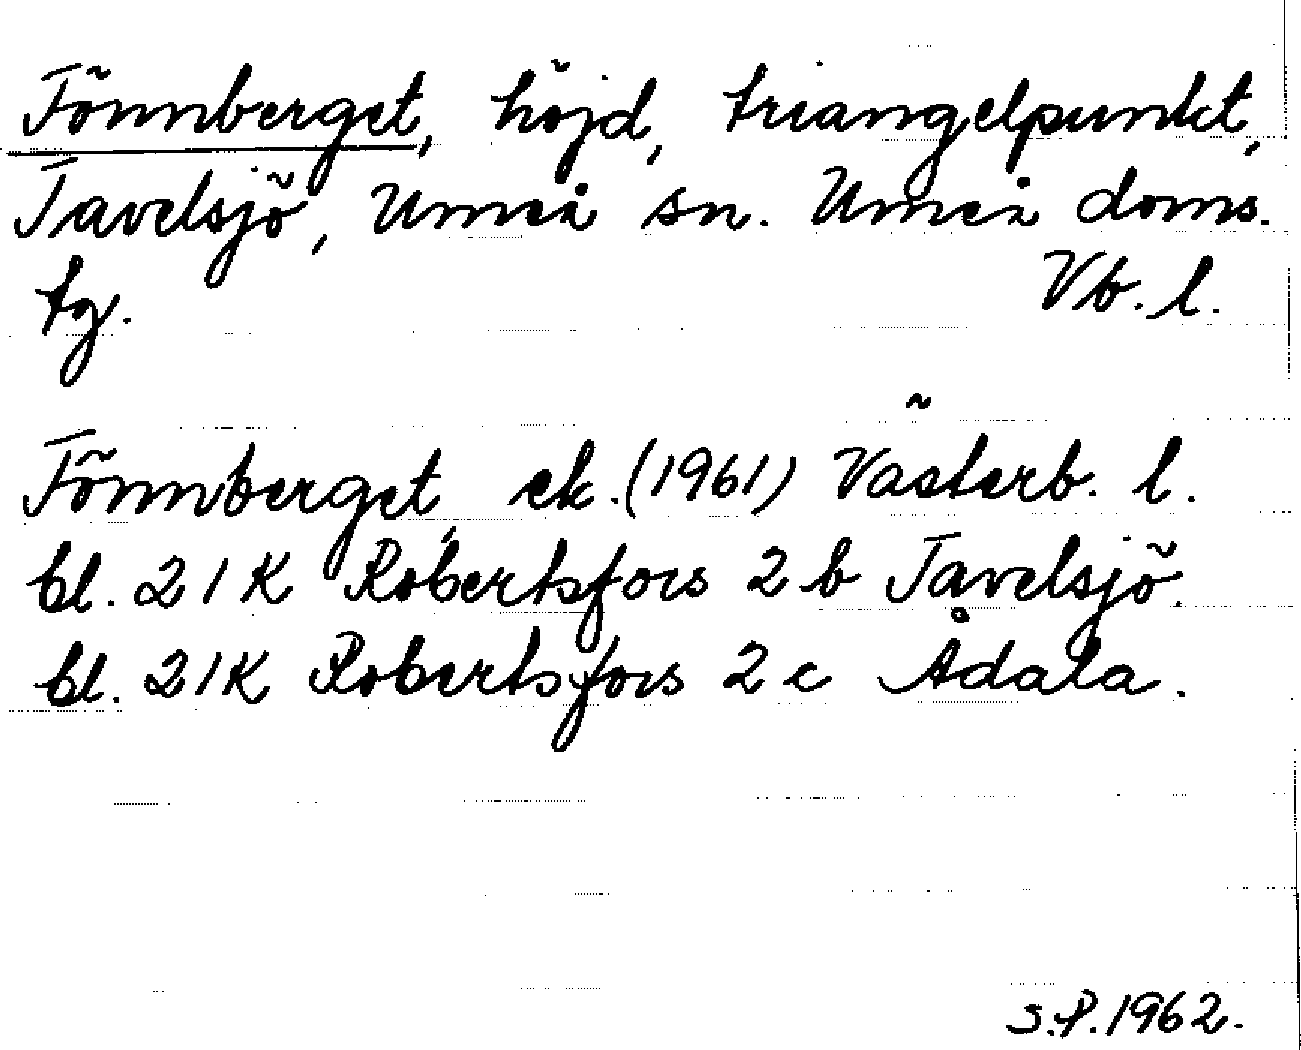 Tönnberget, höjd, triangelpunkt,
Tavelsjö, Umeå sn. Umeå doms.
tg. Vb. l.
Tönnberget, ek. (1961) Västerb. l.
bl. 21K Robertsfors 2 b Tavelsjö.
bl. 21K Robertsfors 2 c Ådala.
S.P. 1962.